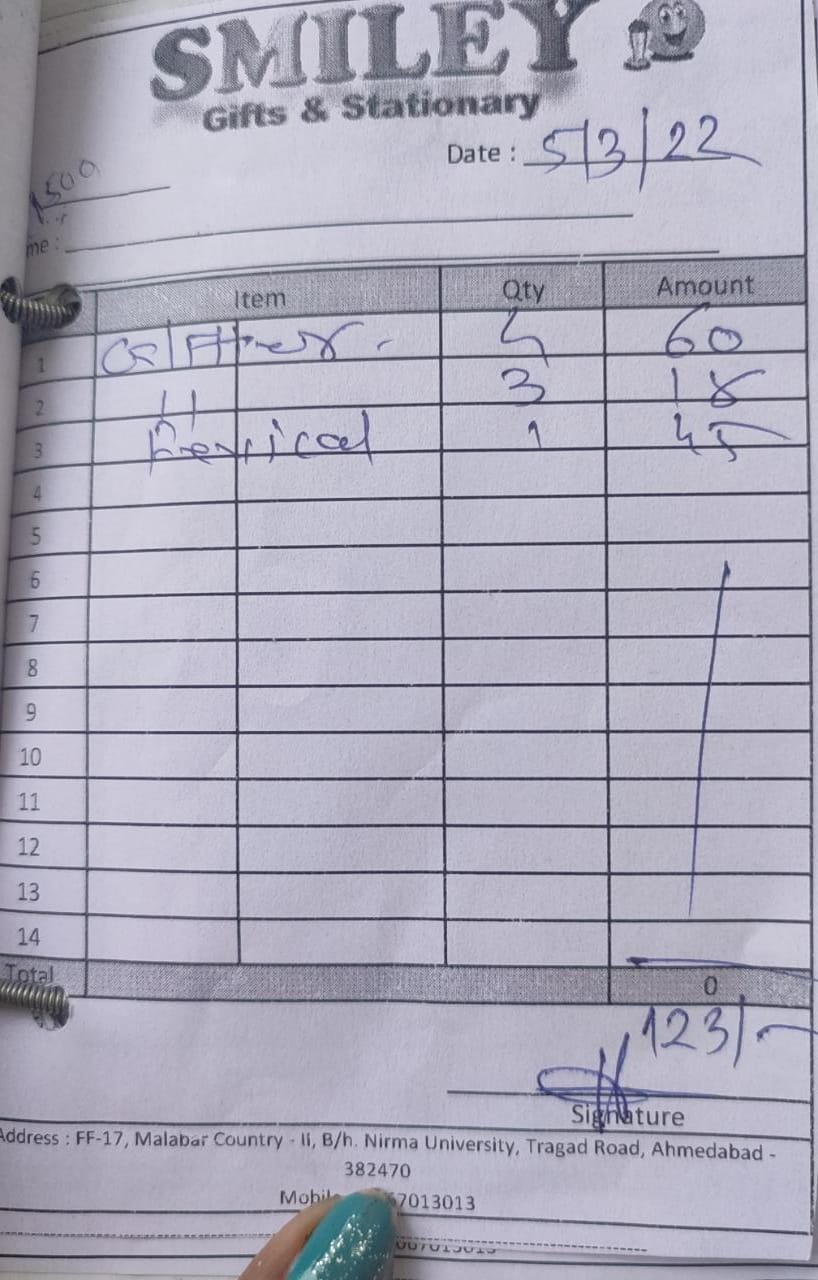 SMILEY
Gifts & Stationary
Date : 5/3/22
1500
me :
Item Qty Amount
1 4 60
2 11 3 18
3 1 45
4
5
6
7
8
9
10
11
12
13
14
Total 0
123/-
Signature
Address : FF-17, Malabar Country - II, B/h. Nirma University, Tragad Road, Ahmedabad -
382470
Mobil 67013013